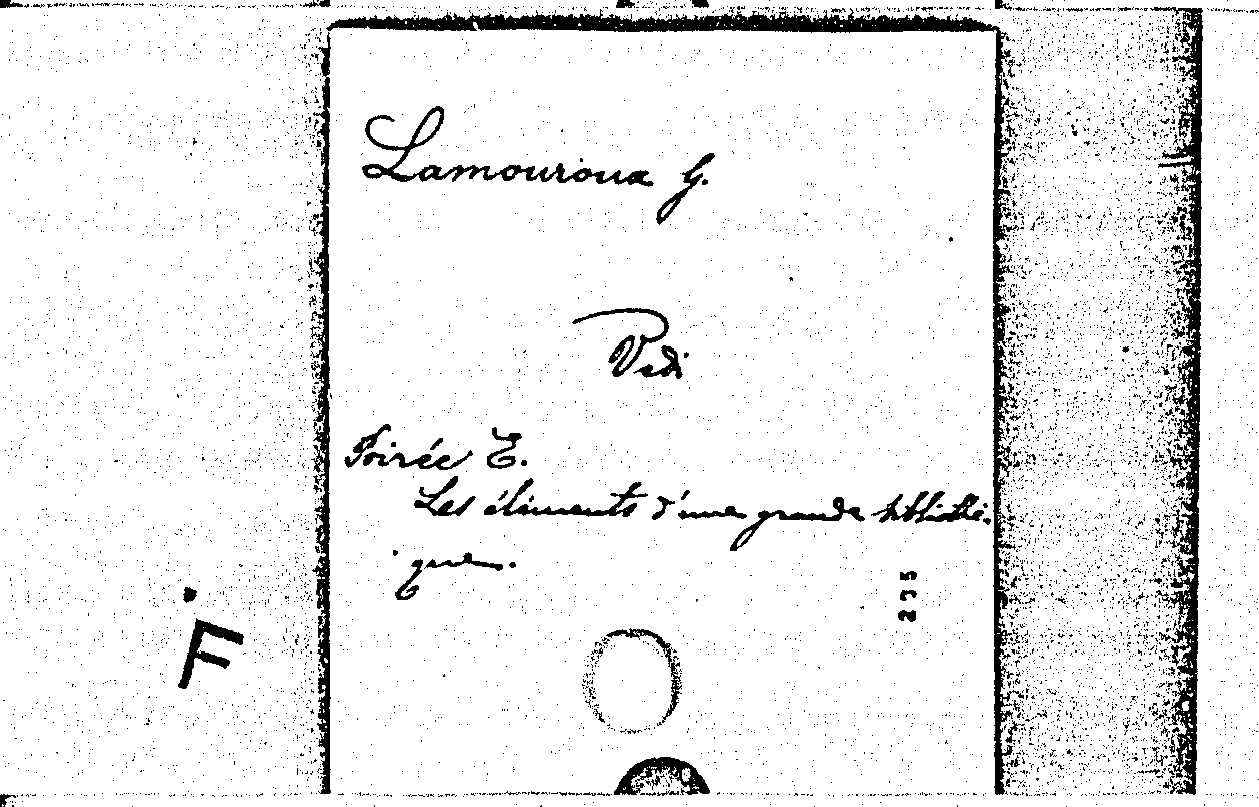 Lamouroux G.
Vedi
Poirée E.
Les éléments d'une grande bibliothè.
que.
235
F